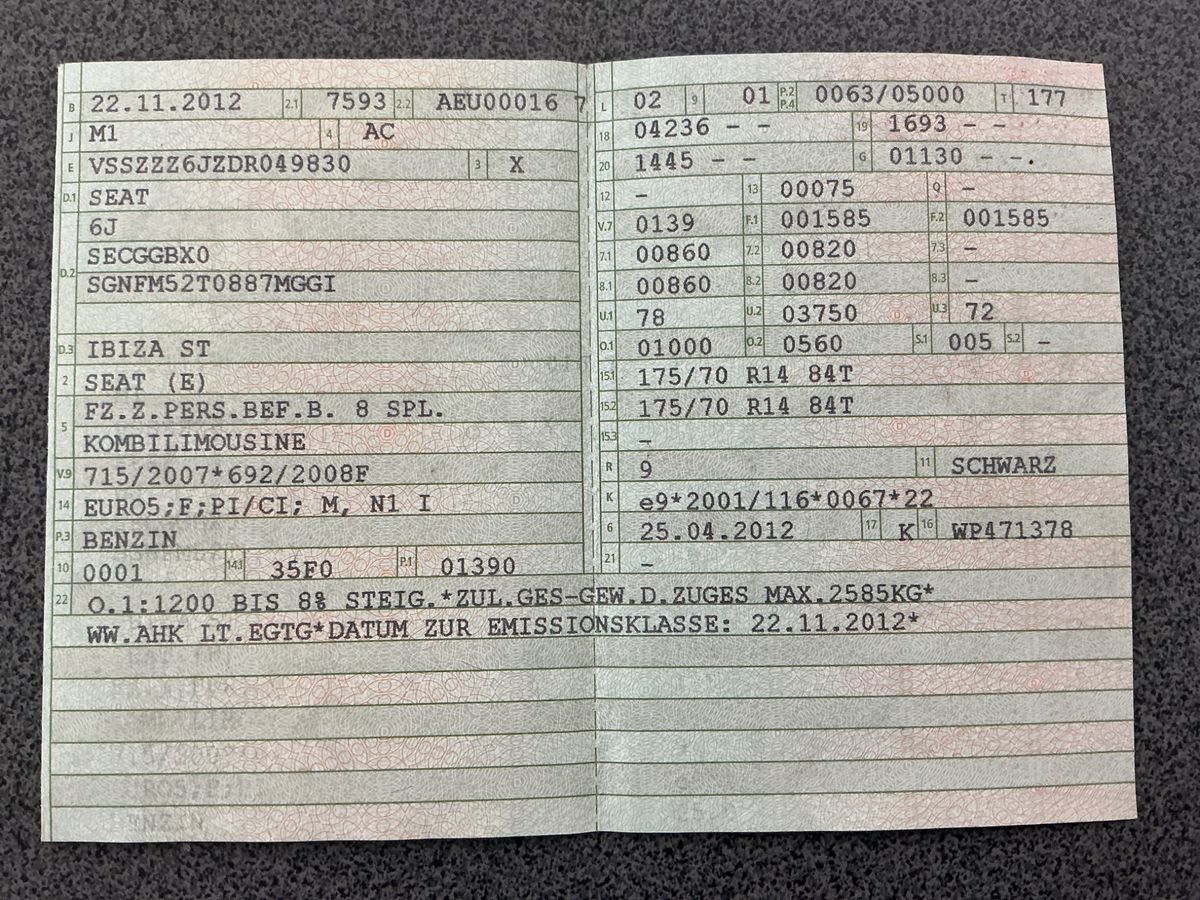 B 22.11.2012 2.1 7593 2.2 AEU00016 7
J M1 4 AC
E VSSZZZ6JZDR049830 3 X
D.1 SEAT
6J
D.2 SECGGBX0
SGNFM52T0887MGGI
D.3 IBIZA ST
2 SEAT (E)
5 FZ.Z.PERS.BEF.B. 8 SPL.
KOMBILIMOUSINE
V.9 715/2007*692/2008F
14 EURO5;F;PI/CI; M, N1 I
P.3 BENZIN
10 0001 14.1 35F0 P.1 01390
L 02 9 01 P.2 P.4 0063/05000 T 177
18 04236 – – 19 1693 – –
20 1445 – – G 01130 – –.
12 – 13 00075 Q –
V.7 0139 F.1 001585 F.2 001585
7.1 00860 7.2 00820 7.3 –
8.1 00860 8.2 00820 8.3 –
U.1 78 U.2 03750 U.3 72
O.1 01000 O.2 0560 S.1 005 S.2 –
15.1 175/70 R14 84T
15.2 175/70 R14 84T
15.3 –
R 9 11 SCHWARZ
K e9*2001/116*0067*22
6 25.04.2012 17 K 16 WP471378
21 –
22 O.1:1200 BIS 8% STEIG.*ZUL.GES-GEW.D.ZUGES MAX.2585KG*
WW.AHK LT.EGTG*DATUM ZUR EMISSIONSKLASSE: 22.11.2012*